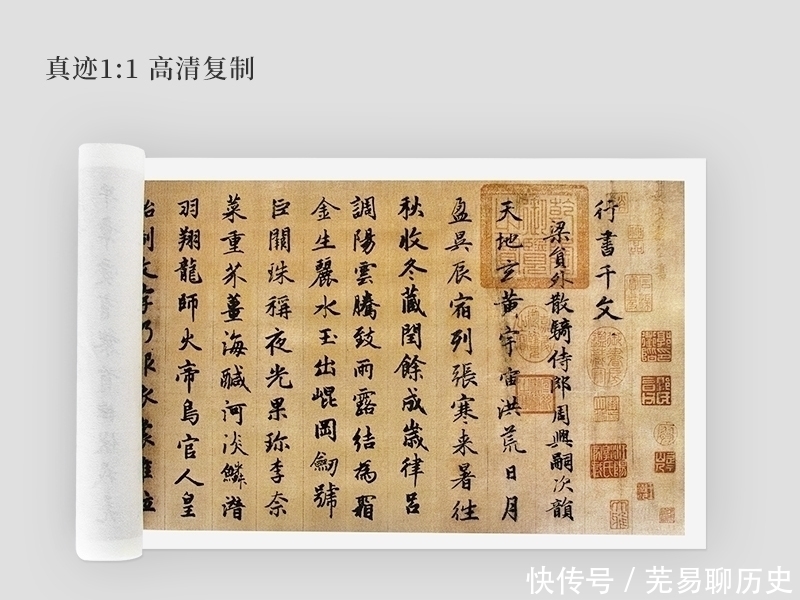 真迹1:1 高清复制
行書千文
梁貟外散騎侍郎周興嗣次韻
天地玄黃宇宙洪荒日月
盈昃辰宿列張寒来暑徃
秋收冬藏閏餘成歲律呂
調陽雲騰致雨露結為霜
金生麗水玉出崐岡劒號
巨闕珠稱夜光果珍李柰
菜重芥薑海醎河淡鱗潛
羽翔龍師火帝鳥官人皇
始制文字乃服衣裳推位
快传号 / 芜易聊历史